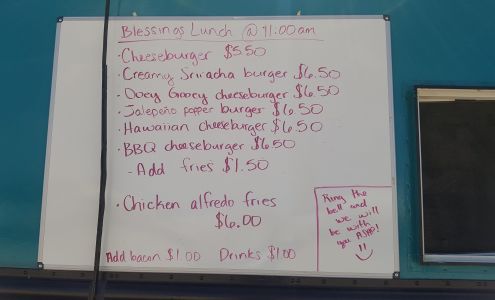 Blessings Lunch @ 11:00am
· Cheeseburger $5.50
· Creamy Sriracha burger $6.50
· Ooey Gooey cheeseburger $6.50
· Jalepeño popper burger $6.50
· Hawaiian cheeseburger $6.50
· BBQ cheeseburger $6.50
- Add fries $1.50
· Chicken alfredo fries
$6.00
Add bacon $1.00 Drinks $1.00
Ring the
bell and
we will
be with
you ASAP!